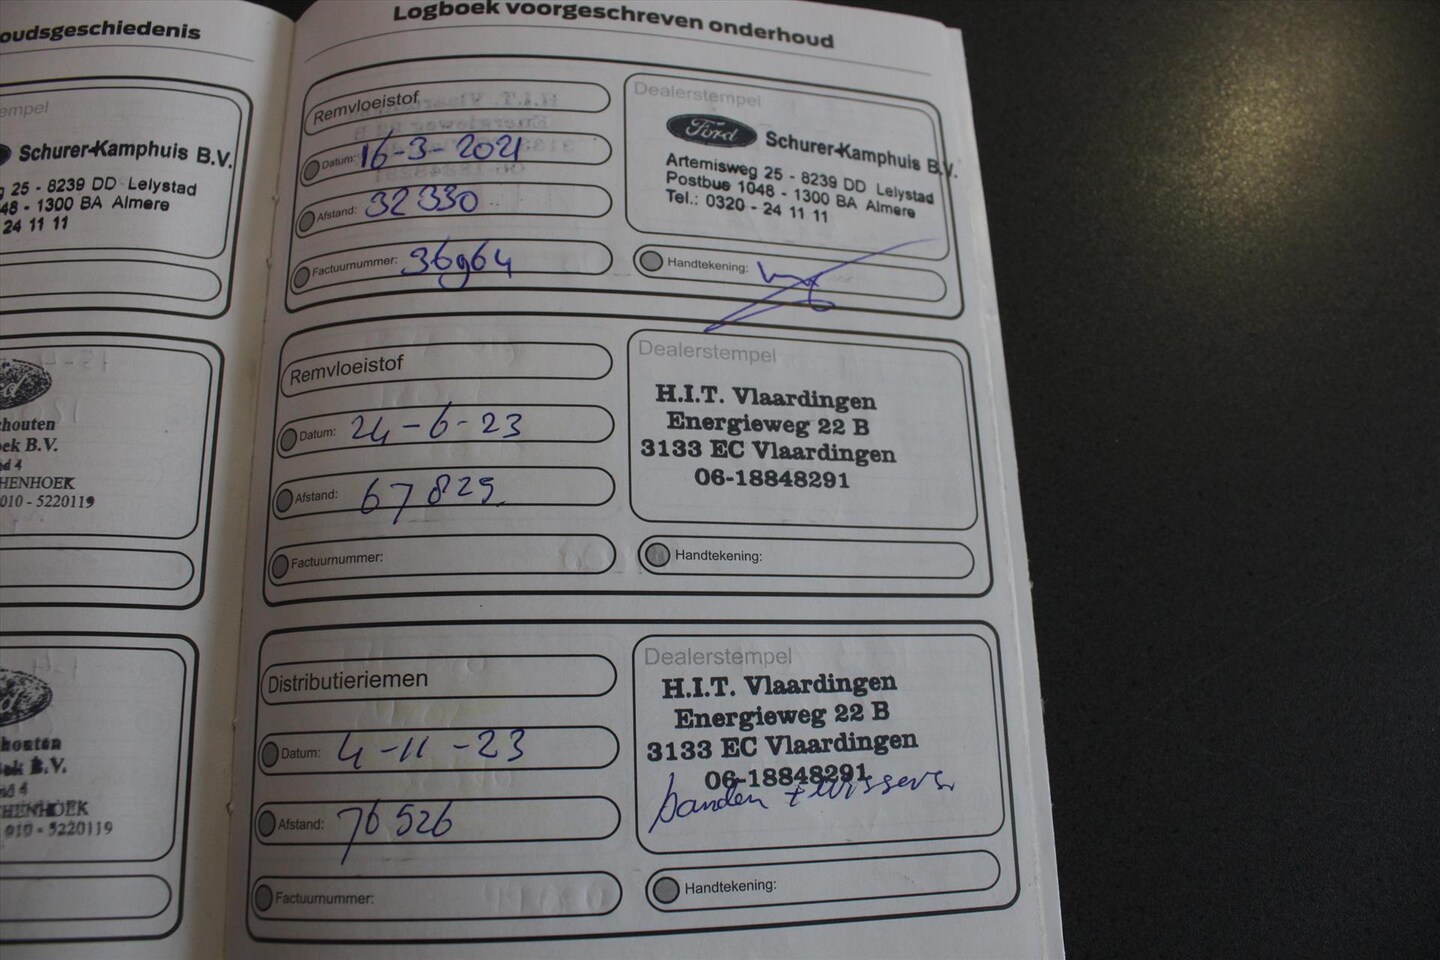 oudsgeschiedenis
empel
Schurer-Kamphuis B.V.
25 - 8239 DD Lelystad
48 - 1300 BA Almere
24 11 11
houten
ek B.V.
d 4
HENHOEK
010 - 5220119
houten
ek B.V.
d 4
CHENHOEK
010 - 5220119
Logboek voorgeschreven onderhoud
Remvloeistof
Datum: 16-3-2021
Afstand: 32330
Factuurnummer: 36964
Dealerstempel
Ford Schurer-Kamphuis B.V.
Artemisweg 25 - 8239 DD Lelystad
Postbus 1048 - 1300 BA Almere
Tel.: 0320 - 24 11 11
Handtekening:
Remvloeistof
Datum: 24-6-23
Afstand: 67825
Factuurnummer:
Dealerstempel
H.I.T. Vlaardingen
Energieweg 22 B
3133 EC Vlaardingen
06-18848291
Handtekening:
Distributieriemen
Datum: 4-11-23
Afstand: 76526
Factuurnummer:
Dealerstempel
H.I.T. Vlaardingen
Energieweg 22 B
3133 EC Vlaardingen
06-18848291
banden + wissers
Handtekening: